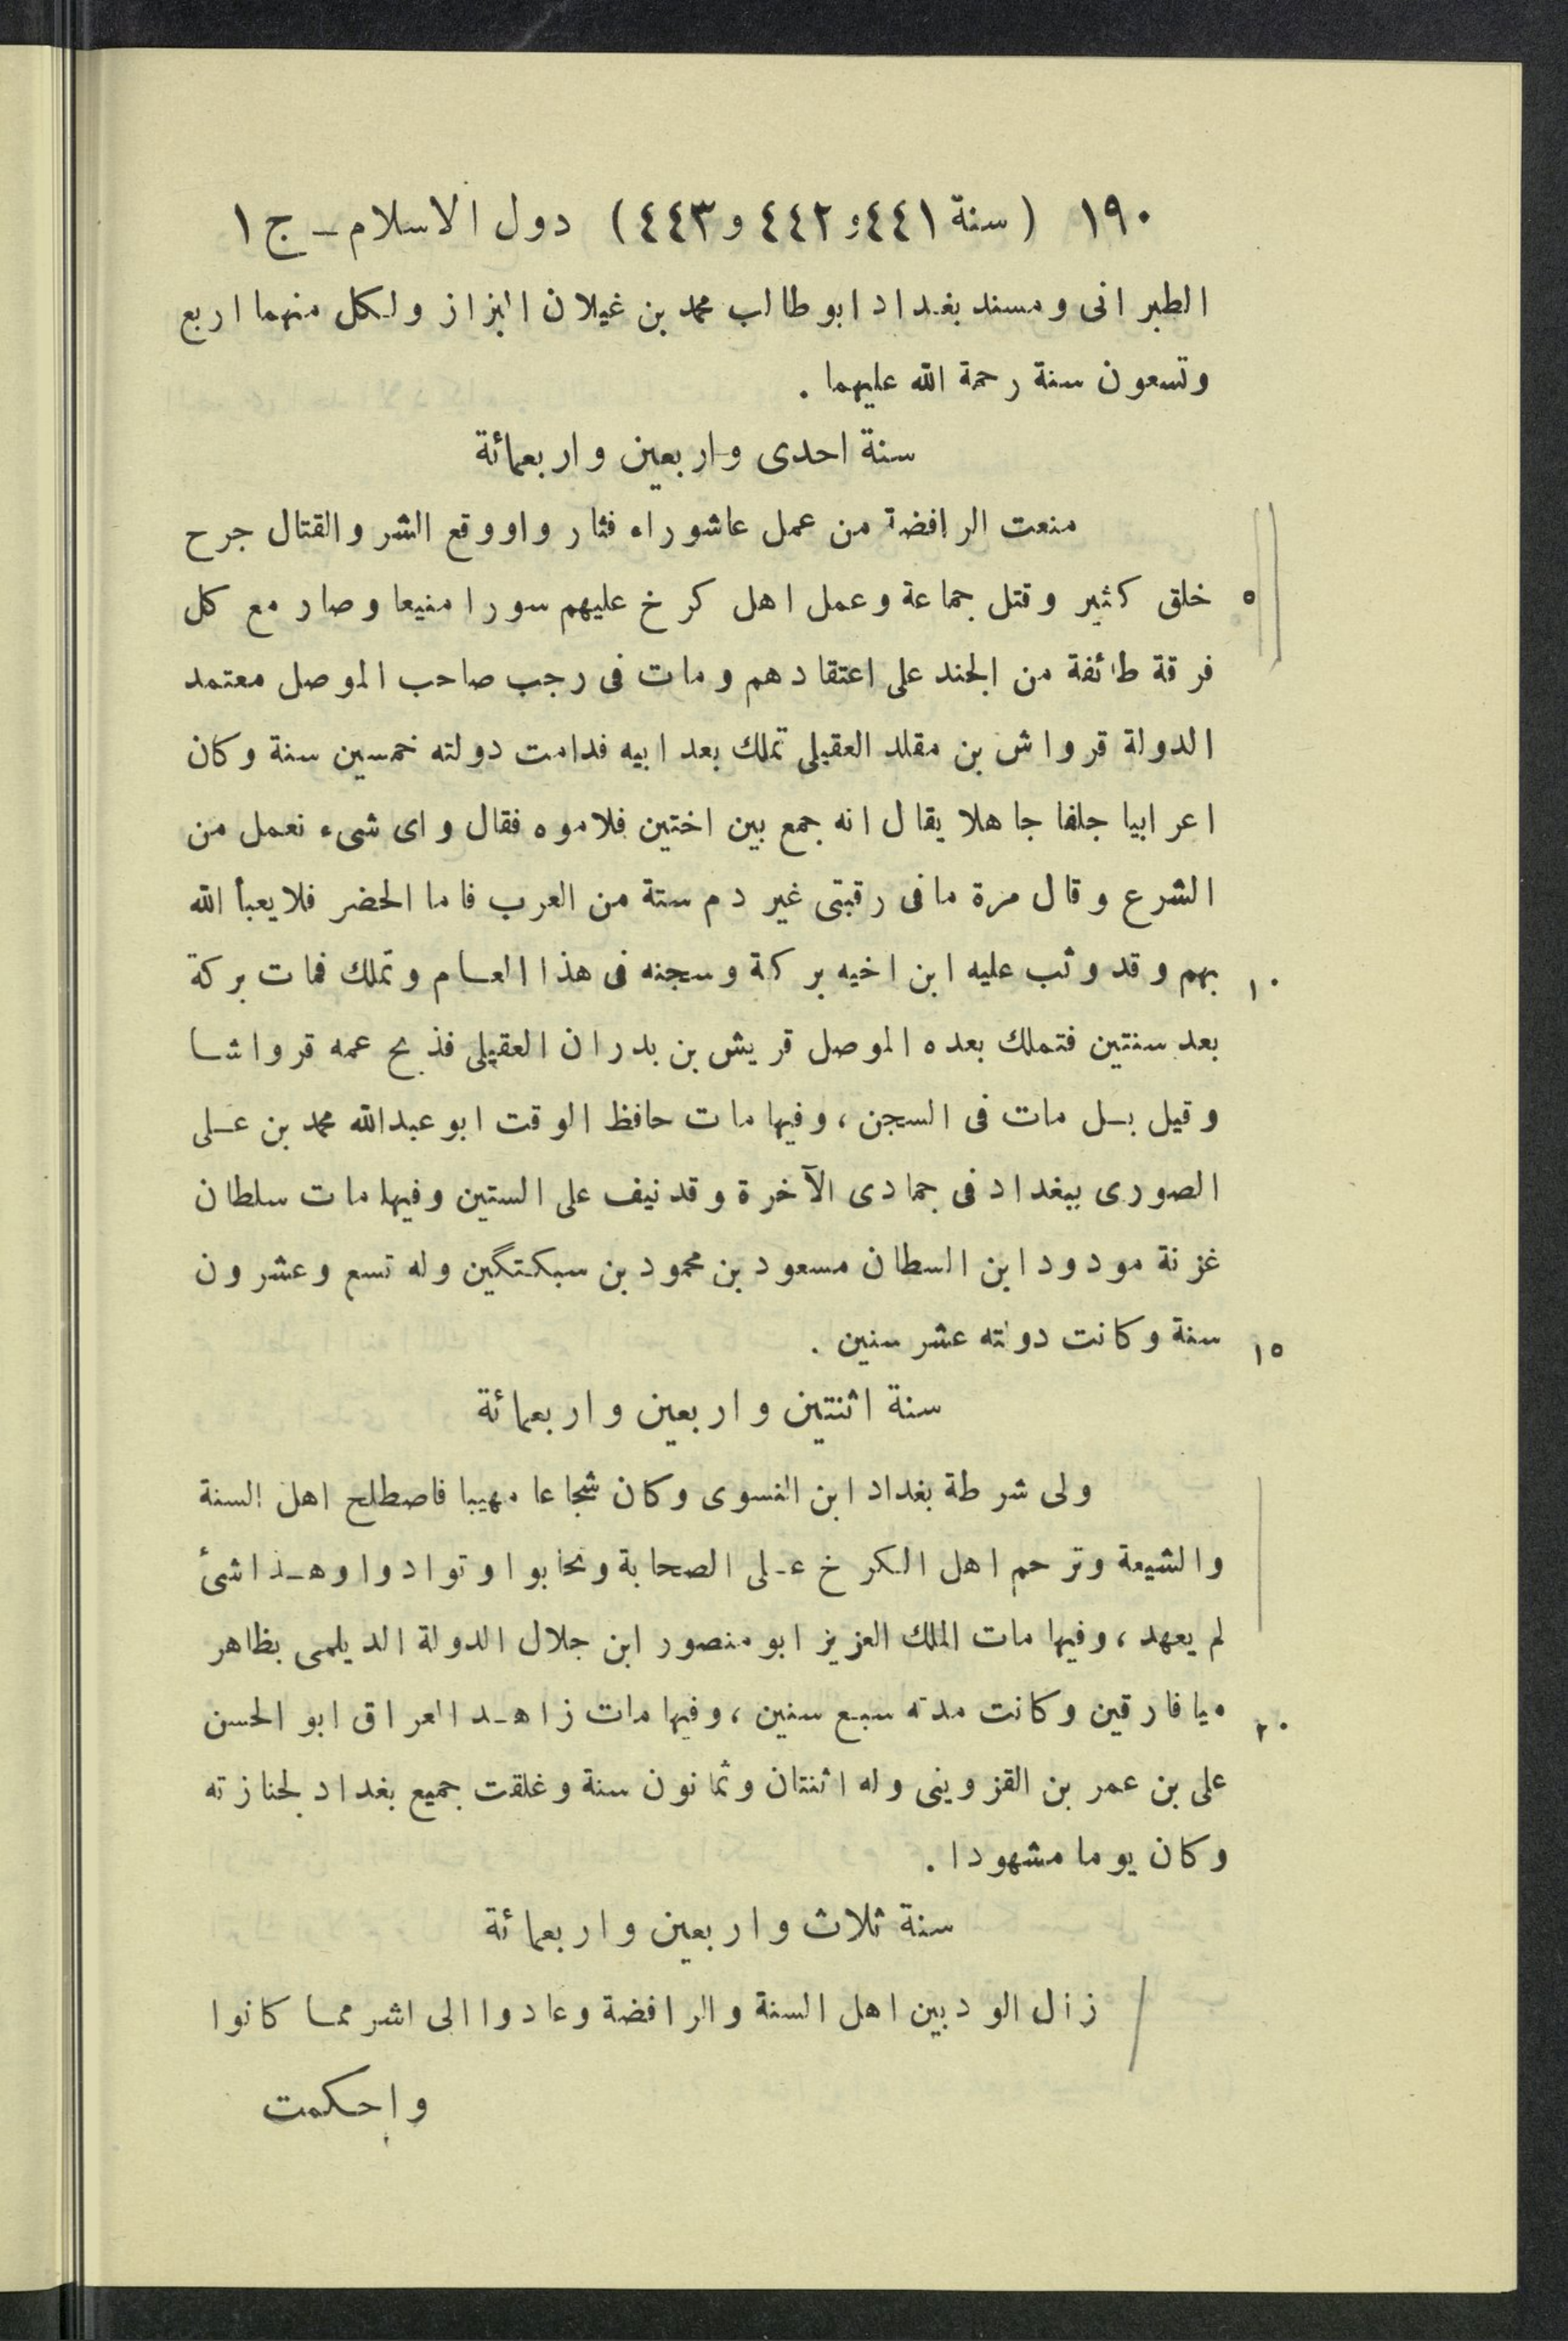 ١٩٠ (سنة ٤٤١و ٤٤٢ و ٤٤٣) دول الاسلام ــ ج ١
الطبرانى ومسند بغداد ابو طالب محمد بن غيلان البزاز ولكل منهما اربع
وتسعون سنة رحمة الله عليهما .
سنة احدى واربعين واربعمائة
منعت الرافضة من عمل عاشوراء فثاروا ووقع الشر والقتال جرح
٥ خلق كثير وقتل جماعة وعمل اهل كرخ عليهم سورا منيعا وصار مع كل
فرقة طائفة من الجند على اعتقادهم ومات فى رجب صاحب الموصل معتمد
الدولة قرواش بن مقلد العقيلى تملك بعد ابيه فدامت دولته خمسين سنة وكان
اعرابيا جلفا جاهلا يقال انه جمع بين اختين فلاموه فقال واى شىء نعمل من
الشرع وقال مرة ما فى رقبتى غير دم ستة من العرب فاما الحضر فلا يعبأ الله
١٠ بهم وقد وثب عليه ابن اخيه بركة وسجنه فى هذا العام وتملك فمات بركة
بعد سنتين فتملك بعده الموصل قريش بن بدران العقيلى فذبح عمه قرواشا
وقيل بل مات فى السجن ، وفيها مات حافظ الوقت ابو عبدالله محمد بن على
الصورى ببغداد فى جمادى الآخرة وقد نيف على الستين وفيها مات سلطان
غزنة مودود ابن السطان مسعود بن محمود بن سبكتگين وله تسع وعشرون
١٥ سنة وكانت دولته عشر سنين .
سنة اثنتين واربعين واربعمائة
ولى شرطة بغداد ابن النسوى وكان شجاعا مهيبا فاصطلح اهل السنة
والشيعة وترحم اهل الكرخ على الصحابة وتحابوا وتوادوا وهذا شئ
لم يعهد ، وفيها مات الملك العزيز ابو منصور ابن جلال الدولة الديلمى بظاهر
٢٠ ميافارقين وكانت مدته سبع سنين ، وفيها مات زاهد العراق ابو الحسن
على بن عمر بن القزوينى وله اثنتان وثمانون سنة وغلقت جميع بغداد لجنازته
وكان يوما مشهودا .
سنة ثلاث واربعين واربعمائة
زال الود بين اهل السنة والرافضة وعادوا الى اشر مما كانوا
واحكمت